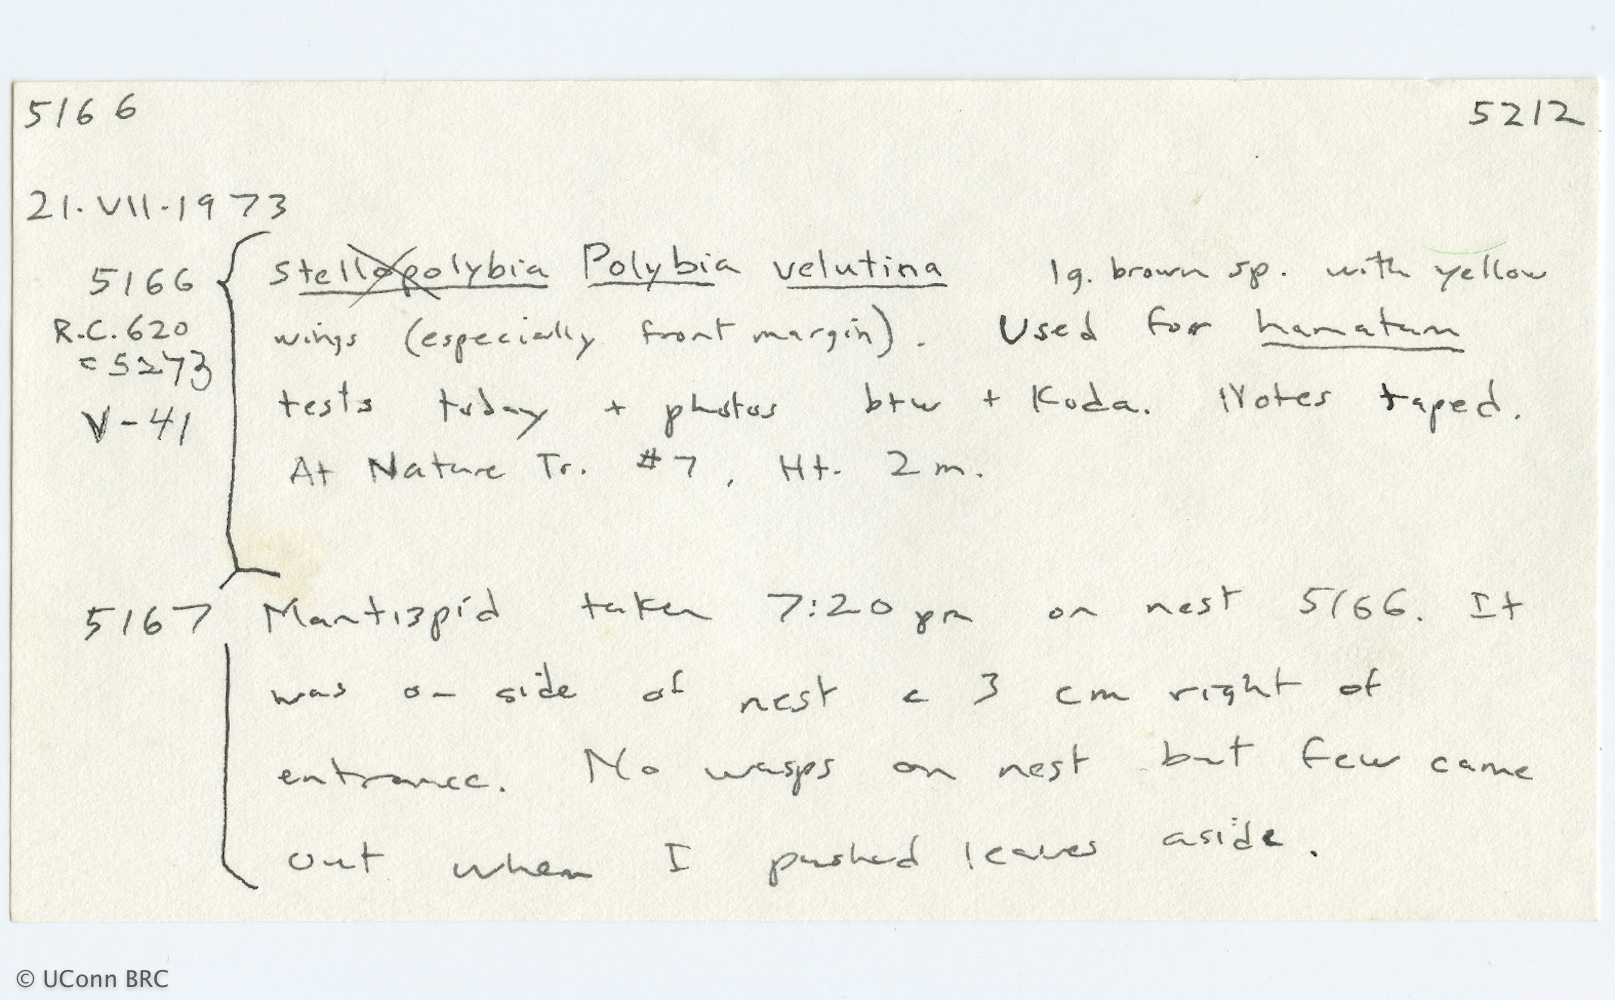 5166 5212
21.VII.1973
5166 Stellopolybia Polybia velutina lg. brown sp. with yellow
R.C.620 wings (especially front margin). Used for hamatum
c 5273 tests today + photos b+w + Koda. Notes taped.
V-41 At Nature Tr. #7, Ht. 2 m.
5167 Mantispid taken 7:20 pm on nest 5166. It
was on side of nest c 3 cm right of
entrance. No wasps on nest but few came
out when I pushed leaves aside.
© UConn BRC